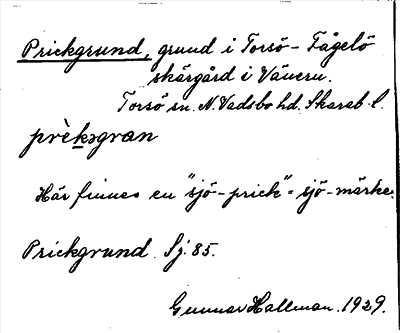 Prickgrund, grund i Torsö-Fågelö
skärgård i Vänern.
Torsö sn. N. Vadsbo hd. Skarab. l.
prèkəgran
Här finnes en "sjö-prick" = sjö-märke.
Prickgrund. Sj. 85.
Gunnar Hallman. 1929.